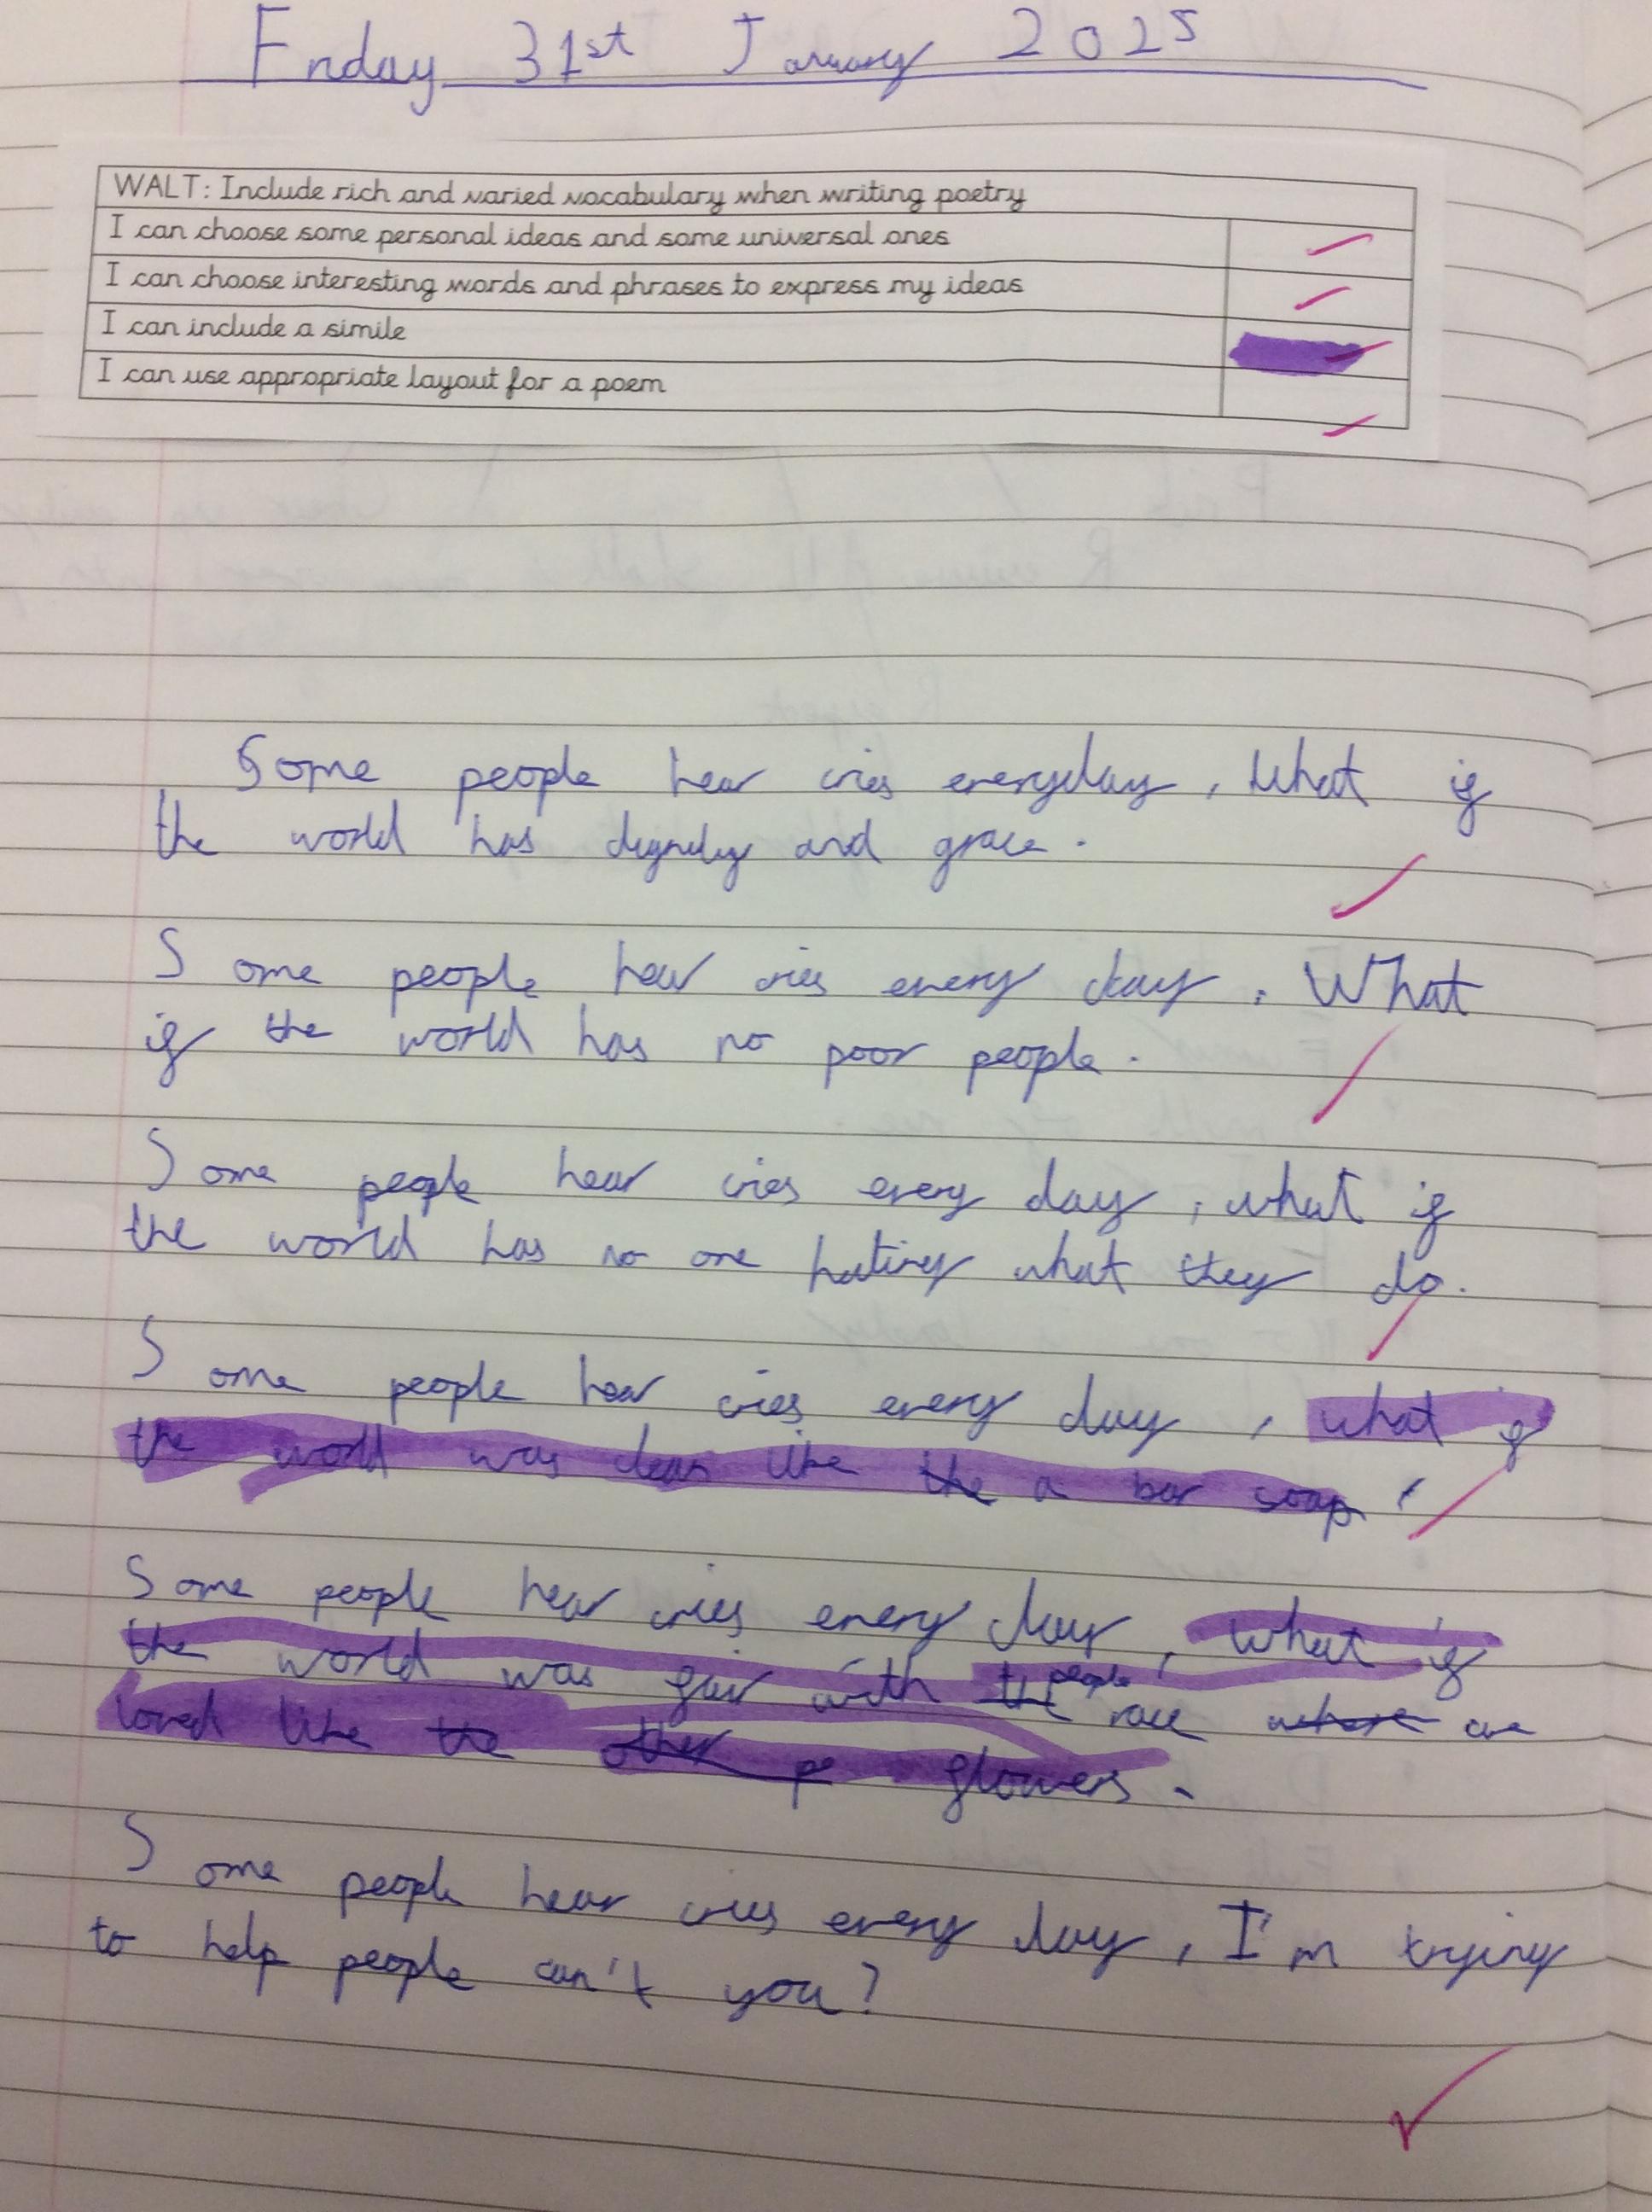 Friday 31st January 2025
WALT: Include rich and varied vocabulary when writing poetry
I can choose some personal ideas and some universal ones
I can choose interesting words and phrases to express my ideas
I can include a simile
I can use appropriate layout for a poem
Some people hear cries everyday, What if
the world has dignity and grace.
Some people hear cries every day, What
if the world has no poor people.
Some people hear cries every day, what if
the world has no one hating what they do.
Some people hear cries every day, what if
the world was clean like the a bar soap.
Some people hear cries every day, what if
the world was fair with people race where are
loved like the other pe flowers.
Some people hear cries every day, I'm trying
to help people can't you?